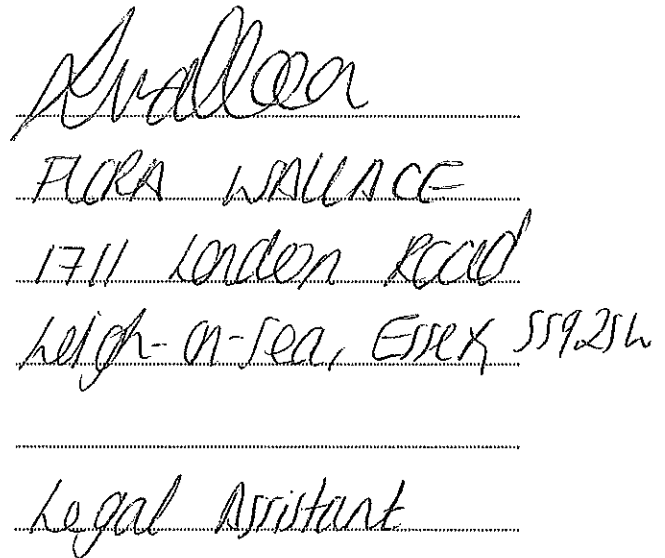 FLORA WALLACE
1711 London Road
Leigh-on-Sea, Essex SS92SW
Legal Assistant